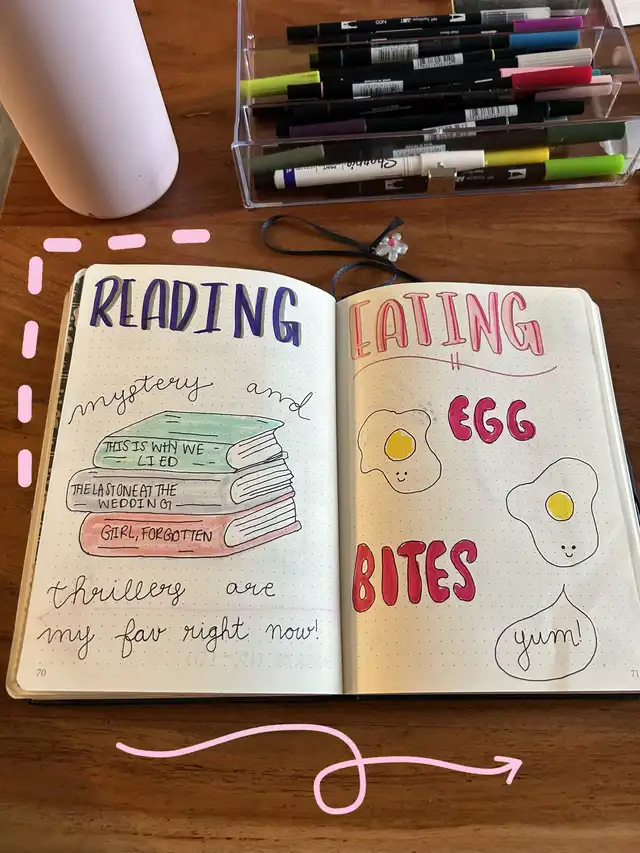 Sharpie
READING
mystery and
THIS IS WHY WE
LIED
THE LAST ONE AT THE
WEDDING
GIRL, FORGOTTEN
thrillers are
my fav right now!
70
EATING
EGG
BITES
yum!
71